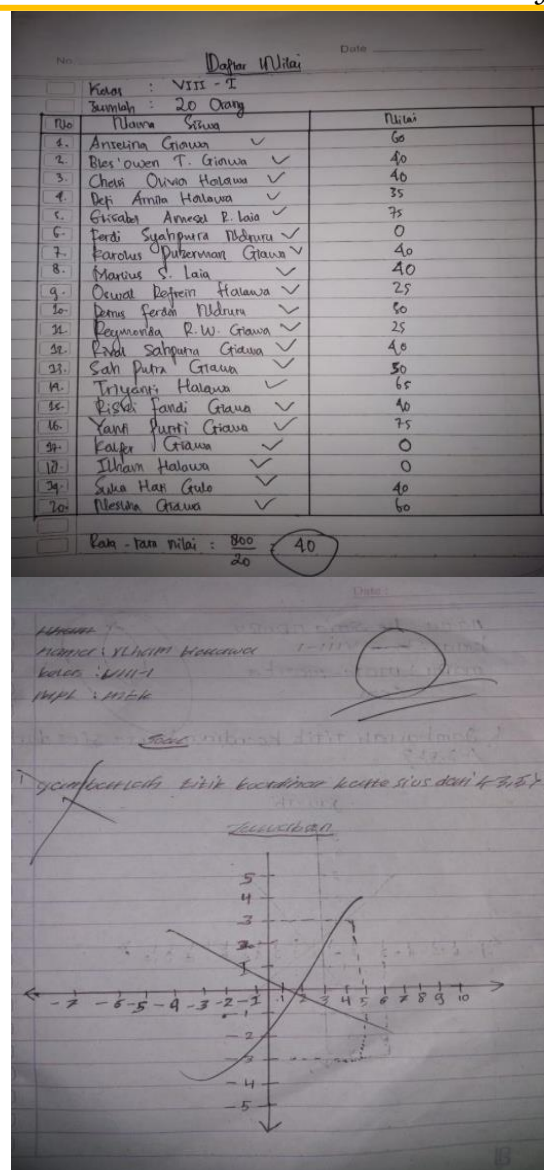 No.
Date
Daftar Nilai
Kelas : VIII - I
Jumlah : 20 Orang
No Nama Siswa Nilai
1. Anselina Giawa ✓ 60
2. Bles'owen T. Giawa ✓ 40
3. Chelsi Olivia Halawa ✓ 40
4. Defi Amila Halawa ✓ 35
5. R. Laia ✓ 75
6. Ferdi Syahputra Ndruru ✓ 0
7. Karolus Giawa ✓ 40
8. Marlius S. Laia ✓ 40
9. Oswal Refrein Halawa ✓ 25
10. Ferdin Ndruru ✓
11. Reymonda R.W. Giawa ✓ 25
12. Rival Sahputra Giawa ✓ 40
13. Sah Putra Giawa ✓ 50
14. Triyanti Halawa ✓ 65
15. Fandi Giawa ✓ 40
16. Yanti Giawa ✓ 75
17. Giawa ✓ 0
18. Ilham Halawa ✓ 0
19. Suka Hati Gulo ✓ 40
20. Giawa ✓ 60
Rata - rata nilai : 800
20
= 40
Date :
kelas : VIII-1
Soal
1 titik dari
Jawaban
5
4
3
2
1
-7 -6 -5 -4 -3 -2 -1 1 2 3 4 5 6 7 8 9 10
-1
-2
-3
-4
-5